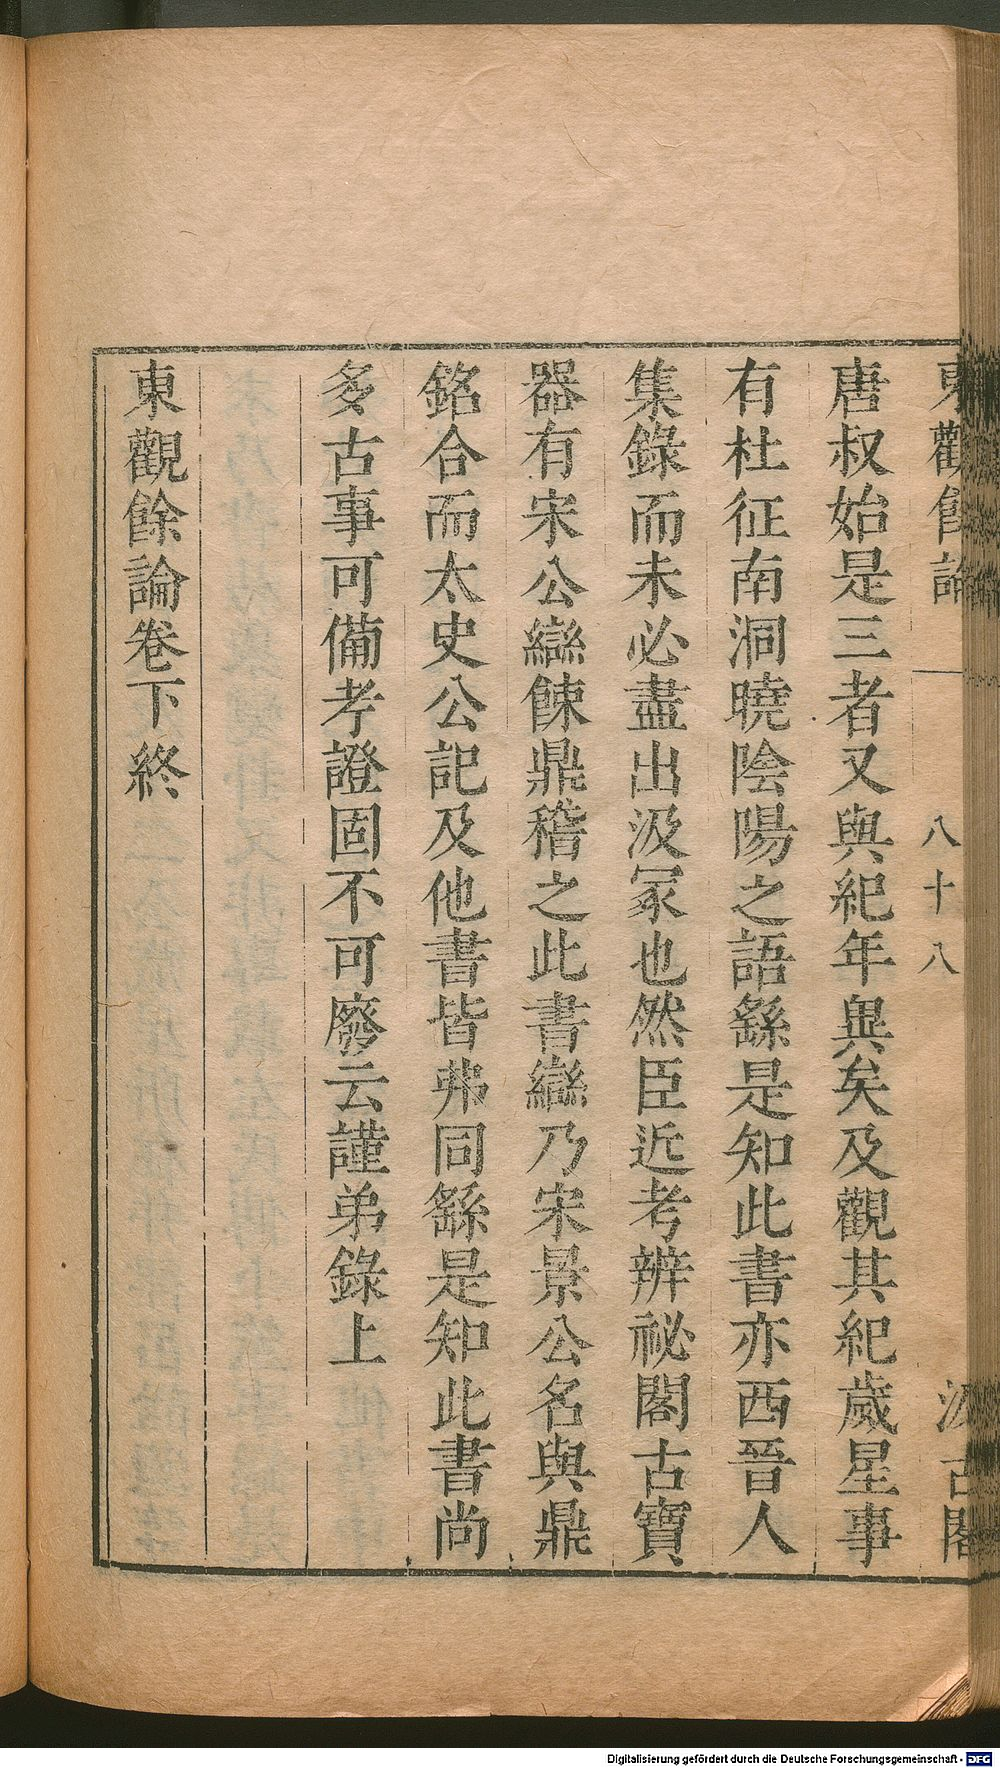 東觀餘論
八十八
汲古閣
唐叔始是三者又與紀年異矣及觀其紀歲星事
有杜征南洞曉陰陽之語繇是知此書亦西晉人
集錄而未必盡出汲冢也然臣近考辨祕閣古寶
器有宋公䜌餗鼎稽之此書䜌乃宋景公名與鼎
銘合而太史公記及他書皆弗同繇是知此書尚
多古事可備考證固不可廢云謹弟錄上
東觀餘論卷下終
Digitalisierung gefördert durch die Deutsche Forschungsgemeinschaft - DFG